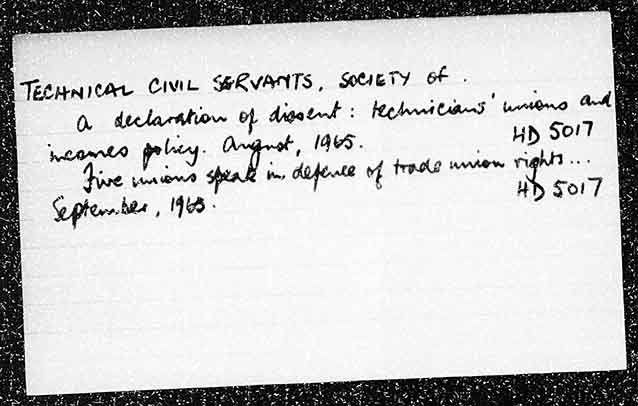 TECHNICAL CIVIL SERVANTS, SOCIETY of.
A declaration of dissent: technicians' unions and
incomes policy. August, 1965. HD 5017
Five unions speak in defence of trade union rights...
September, 1965. HD 5017